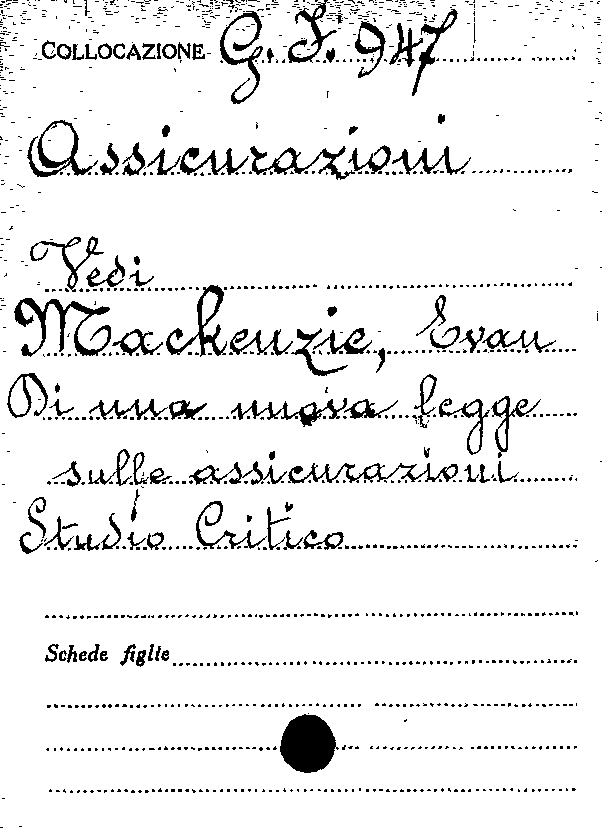 COLLOCAZIONE G. J. 947
Assicurazioni
Vedi
Mackenzie, Evan
Di una nuova legge
sulle assicurazioni
Studio Critico
Schede figlie